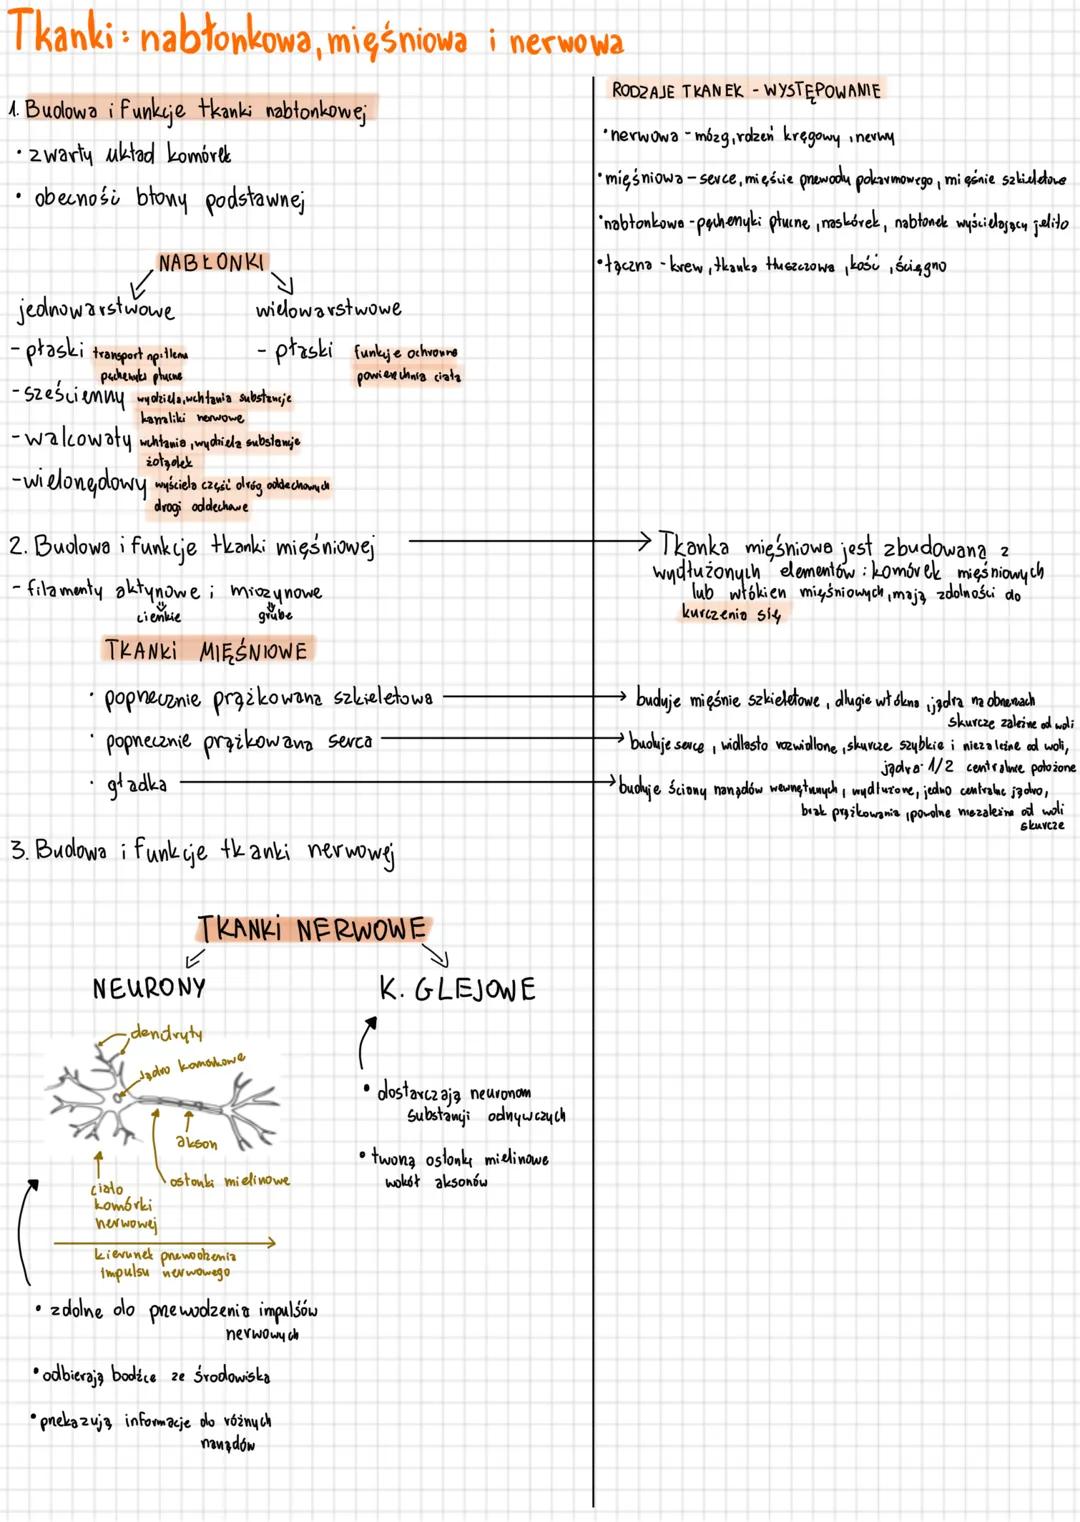 Tkanki: nabłonkowa, mięśniowa i nerwowa
1. Budowa i funkcje tkanki nabłonkowej
• zwarty układ komórek
• obecność błony podstawnej
NABŁONKI
jednowarstwowe
wielowarstwowe
- płaski transport np. tlenu
pęcherzyki płucne
- płaski funkcje ochronne
powierzchnia ciała
- sześcienny wydziela, wchłania substancje
kanaliki nerwowe
- walcowaty wchłania, wydziela substancje
żołądek
- wielorzędowy wyściela część dróg oddechowych
drogi oddechowe
2. Budowa i funkcje tkanki mięśniowej
- filamenty aktynowe i miozynowe
cienkie
grube
TKANKI MIĘŚNIOWE
• poprzecznie prążkowana szkieletowa
• poprzecznie prążkowana serca
• gładka
3. Budowa i funkcje tkanki nerwowej
TKANKI NERWOWE
NEURONY
K. GLEJOWE
dendryty
Jądro komórkowe
akson
osłonki mielinowe
ciało
komórki
nerwowej
kierunek przewodzenia
impulsu nerwowego
• zdolne do przewodzenia impulsów
nerwowych
• odbierają bodźce ze środowiska
• przekazują informacje do różnych
narządów
• dostarczają neuronom
substancji odżywczych
• tworzą osłonkę mielinowe
wokół aksonów
RODZAJE TKANEK - WYSTĘPOWANIE
• nerwowa - mózg, rdzeń kręgowy, nerwy
• mięśniowa - serce, mięśnie przewodu pokarmowego, mięśnie szkieletowe
• nabłonkowa - pęcherzyki płucne, naskórek, nabłonek wyścielający jelito
• łączna - krew, tkanka tłuszczowa, kość, ścięgno
Tkanka mięśniowa jest zbudowana z
wydłużonych elementów: komórek mięśniowych
lub włókien mięśniowych, mają zdolności do
kurczenia się
buduje mięśnie szkieletowe, długie włókna, jądra na obrzeżach
skurcze zależne od woli
buduje serce, widlasto rozwidlone, skurcze szybkie i niezależne od woli,
jądra: 1/2 centralnie położone
buduje ściany narządów wewnętrznych, wydłużone, jedno centralne jądro,
brak prążkowania, powolne niezależne od woli
skurcze